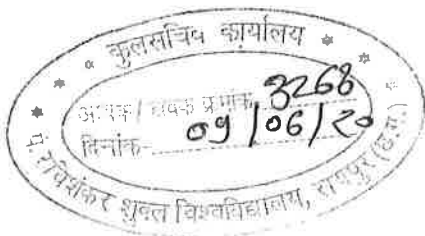 कुलसचिव कार्यालय
आवक / जावक क्रमांक 3268
दिनांक- 09/06/20
पं. रविशंकर शुक्ल विश्वविद्यालय, रायपुर (छ.ग.)